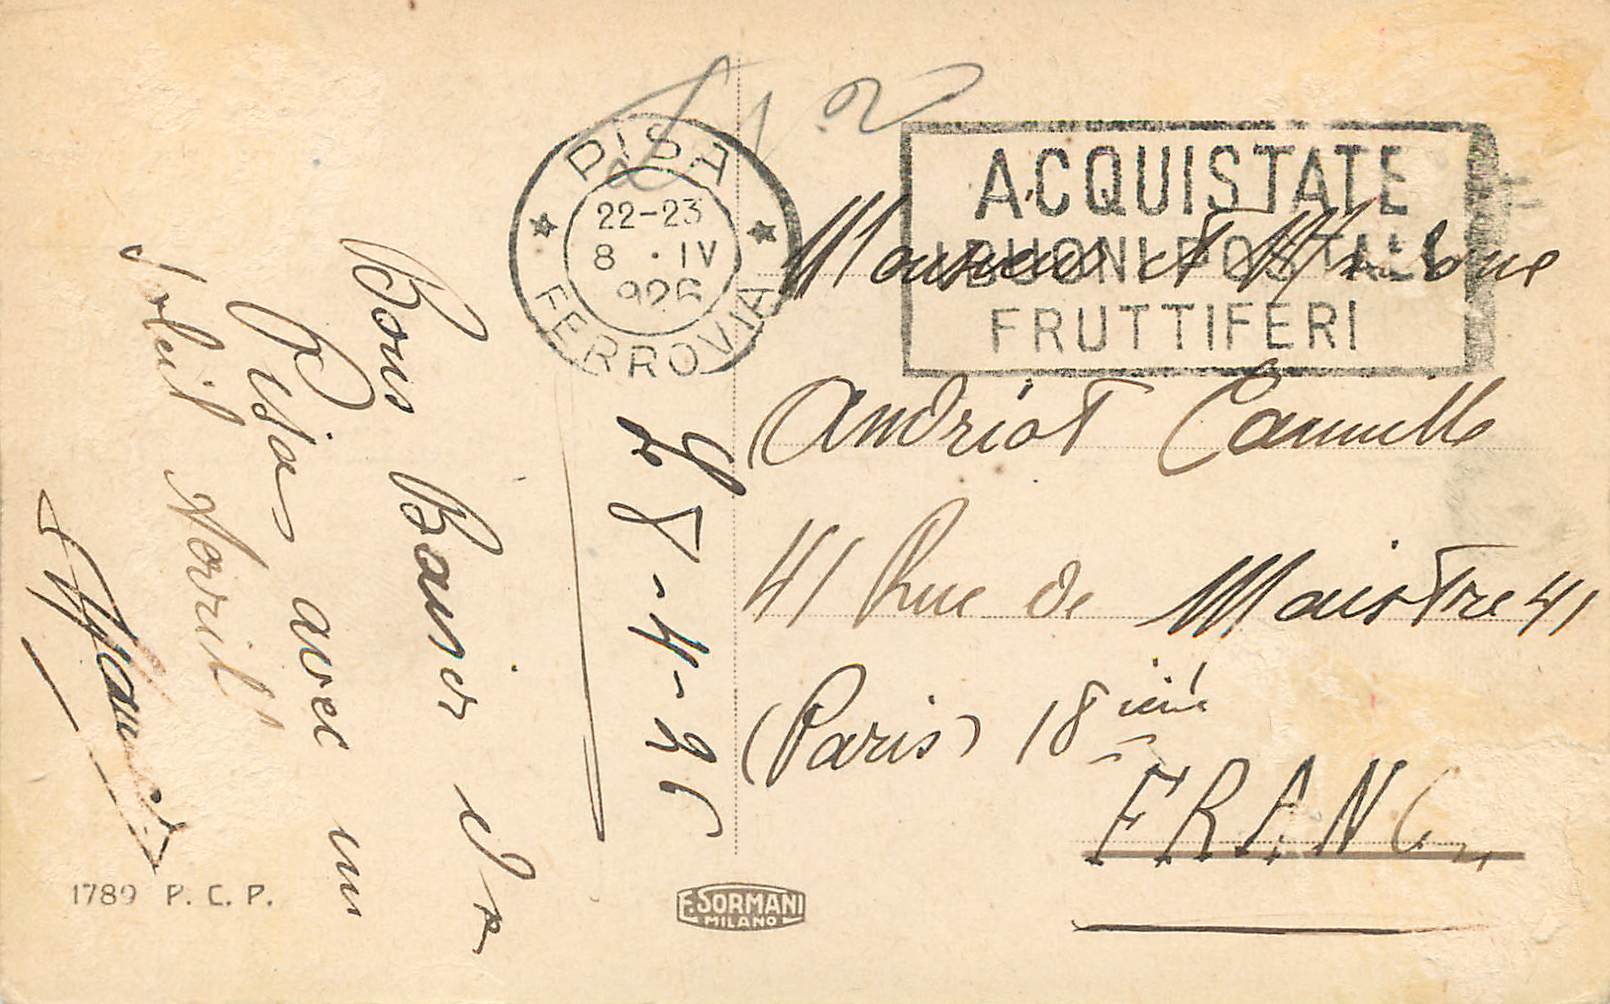 Le 8-4-26
Bons Baiser de
Pisa avec un
soleil
PISA
22-23
8 · IV
926
FERROVIA
ACQUISTATE
I BUONI POSTALI
FRUTTIFERI
Monsieur et Madame
Andriot Camille
41 Rue de Maistre 41
(Paris) 18 ième
FRANCE
1789 P. C. P.
F. SORMANI
MILANO